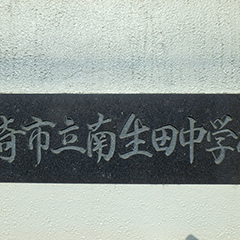 崎市立南生田中学